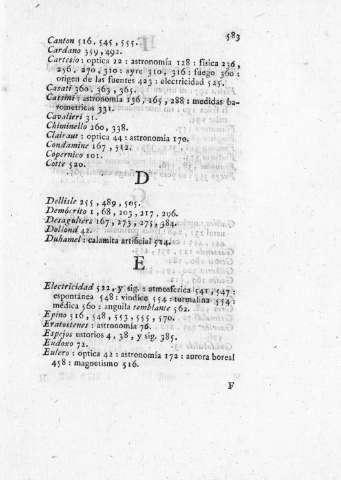 583
Canton 516, 545, 555.
Cardano 359, 492.
Cartesio: optica 22: astronomía 128: física 236,
256, 270, 310: ayre 310, 316: fuego 360:
origen de las fuentes 423: electricidad 525.
Casati 360, 363, 365.
Cassini: astronomía 136, 165, 288: medidas ba-
rometricas 331.
Cavalieri 31.
Chiminello 260, 338.
Clairaut: optica 44: astronomía 170.
Condamine 167, 512.
Copernico 101.
Cotte 520.
D
Dellisle 255, 489, 505.
Demócrito 1, 68, 203, 217, 296.
Desaguliers 167, 273, 275, 384.
Dollond 42.
Duhamel: calamita artificial 514.
E
Electricidad 522, y sig.: atmosferica 541, 547:
espontánea 548: vindice 554: turmalina 554:
médica 560: anguila temblante 562.
Epino 516, 548, 553, 555, 570.
Eratostenes: astronomía 76.
Espejos ustorios 4, 38, y sig. 385.
Eudoxo 72.
Eulero: optica 42: astronomía 172: aurora boreal
458: magnetismo 516.
F